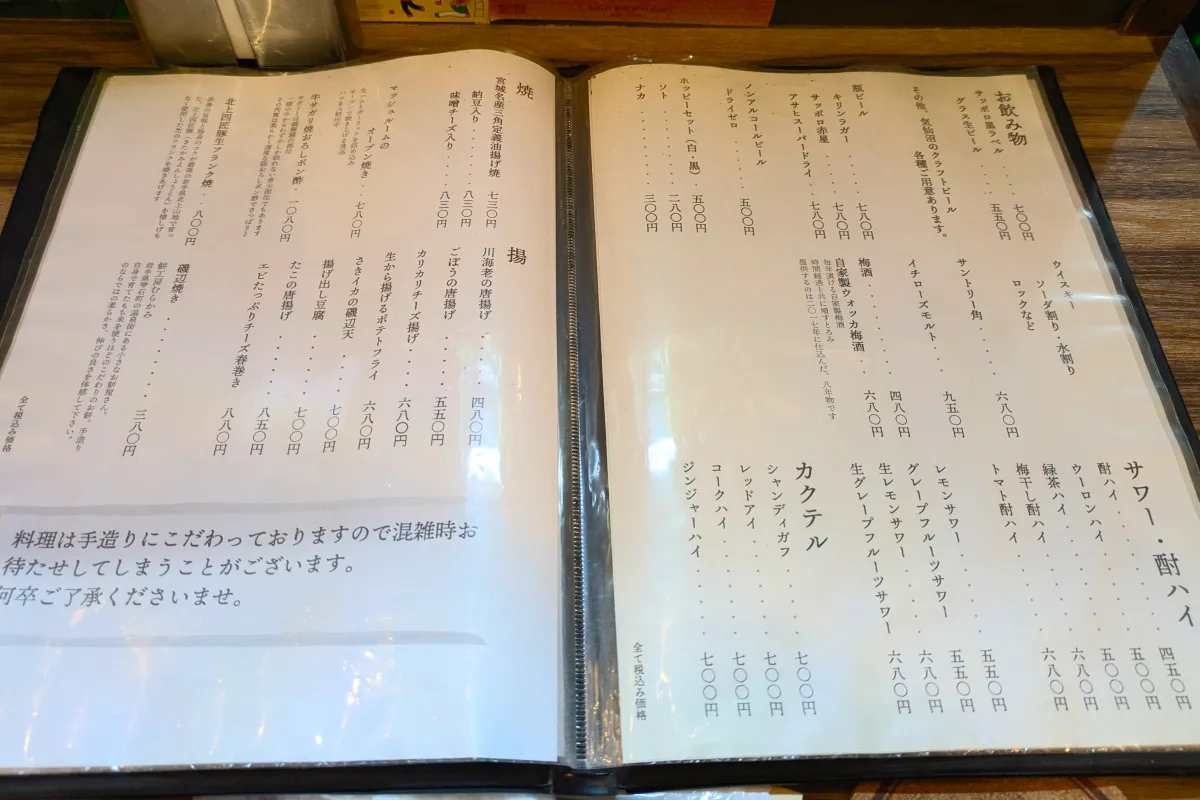 お飲み物
サッポロ黒ラベル・・・七〇〇円
グラス生ビール・・・五五〇円
その他、気仙沼のクラフトビール
各種ご用意あります。
瓶ビール
キリンラガー・・・・七八〇円
サッポロ赤星・・・・七八〇円
アサヒスーパードライ・七八〇円
ノンアルコールビール
ドライゼロ・・・・五〇〇円
ホッピーセット（白・黒）・五〇〇円
ソト・・・・・・・二八〇円
ナカ・・・・・・・三〇〇円
ウイスキー
ソーダ割り・水割り
ロックなど
サントリー角・・・・六八〇円
イチローズモルト・・・九五〇円
梅酒・・・・・・・四八〇円
自家製ウォッカ梅酒・・六八〇円
毎年漬ける自家製梅酒
時間経過と共に増すとろみ
提供するのは二〇一七年に仕込んだ、八年物です
サワー・酎ハイ
酎ハイ・・・・・・・四五〇円
ウーロンハイ・・・・・五〇〇円
緑茶ハイ・・・・・・五〇〇円
梅干し酎ハイ・・・・・六八〇円
トマト酎ハイ・・・・・六八〇円
レモンサワー・・・・・五五〇円
グレープフルーツサワー・・五五〇円
生レモンサワー・・・・六八〇円
生グレープフルーツサワー・六八〇円
カクテル
シャンディガフ・・・・七〇〇円
レッドアイ・・・・・・七〇〇円
コークハイ・・・・・・七〇〇円
ジンジャーハイ・・・・七〇〇円
全て税込み価格
焼
宮城名産三角定義油揚げ焼・七三〇円
納豆入り・・・・・八三〇円
味噌チーズ入り・・・八三〇円
マッシュルームの
オーブン焼き・・七八〇円
牛サガリ焼おろしポン酢・一〇八〇円
北上四匠豚生フランク焼・八〇〇円
揚
川海老の唐揚げ・・・・四八〇円
ごぼうの唐揚げ・・・・五五〇円
カリカリチーズ揚げ・・・六八〇円
生から揚げるポテトフライ・六八〇円
さきイカの磯辺天・・・・七〇〇円
揚げ出し豆腐・・・・・七〇〇円
たこの唐揚げ・・・・・八五〇円
エビたっぷりチーズ春巻き・八八〇円
磯辺焼き・・・・・・三八〇円
餅工房むらかみ
岩手県雫石町の温泉街にある小さなお餅屋さん。
自身で育てたもち米を使うほどのこだわりのお餅。手造り
のならではの柔らかさ、伸びの良さを体感して下さい。
全て税込み価格
料理は手造りにこだわっておりますので混雑時お
待たせしてしまうことがございます。
何卒ご了承くださいませ。